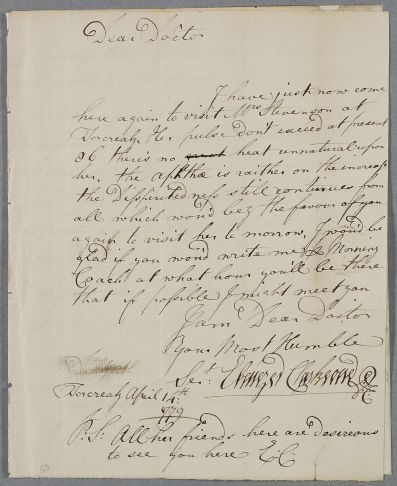 Dear Doctor
I have just now come
here again to visit Mrs Stevenson at
Torcreak, Her pulse don't exceed at present
86 there's no heat unnatural upon
her, the aphthæ is raither on the increase
the Dispiritedness still continues from
all which would beg the favour of you
again to visit her to morrow, I would be
glad if you would write me Morning
Coach at what hour you'll be there
that if possible I might meet you
I am Dear Doctor
Your Most Humble
Sert. Ebenezer
Torcreak April 14th
1779
P.S. All her friends here are desireous
to see you here &C: